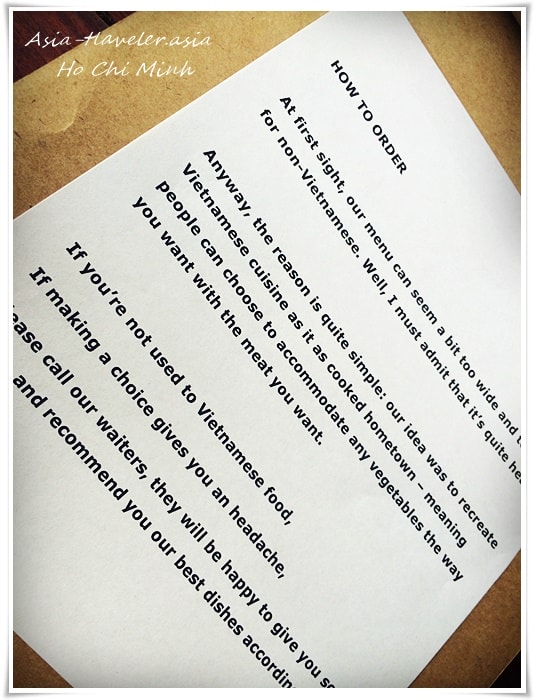 Asia-Traveler.asia
Ho Chi Minh
HOW TO ORDER
At first sight, our menu can seem a bit too wide and
for non-Vietnamese. Well, I must admit that it's quite
Anyway, the reason is quite simple: our idea was to recreate
Vietnamese cuisine as it as cooked hometown – meaning
people can choose to accommodate any vegetables the way
you want with the meat you want.
If you're not used to Vietnamese food,
If making a choice gives you an headache,
call our waiters, they will be happy to give you
and recommend you our best dishes